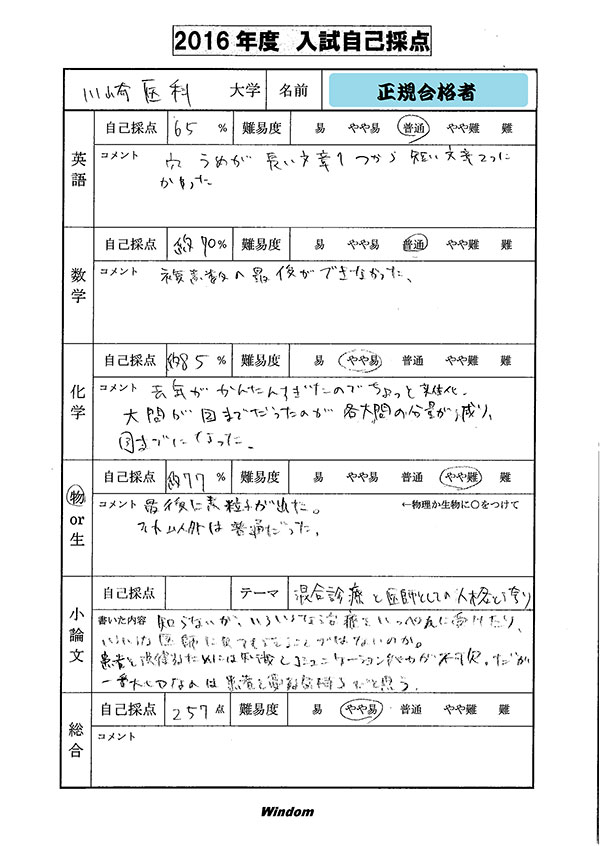 2016年度 入試自己採点
川崎医科 大学 名前 正規合格者
英語
自己採点 65 % 難易度 易 やや易 普通 やや難 難
コメント 穴うめが長い文章1つから短い文章2つに
かわった
数学
自己採点 約70% 難易度 易 やや易 普通 やや難 難
コメント 複素数の最後ができなかった、
化学
自己採点 約85 % 難易度 易 やや易 普通 やや難 難
コメント 去年がかんたんすぎたのでちょっと難化.
大問が までだったのが 各大問の分量が減り、
までになった.
物or生
自己採点 約77 % 難易度 易 やや易 普通 やや難 難
コメント 最後に素粒子が出た。 ←物理か生物に○をつけて
それ以外は普通だった、
小論文
自己採点 テーマ 混合診療と医師としての人格と誇り
書いた内容 知らないが、いろいろな治療をいっぺんに受けたり、
いろいろな医師に見てもらうことではないのか。
患者を には知識とコミュニケーション能力が不可欠。だが
一番大切なのは患者を 気持ちだと思う.
総合
自己採点 257 点 難易度 易 やや易 普通 やや難 難
コメント
Windom